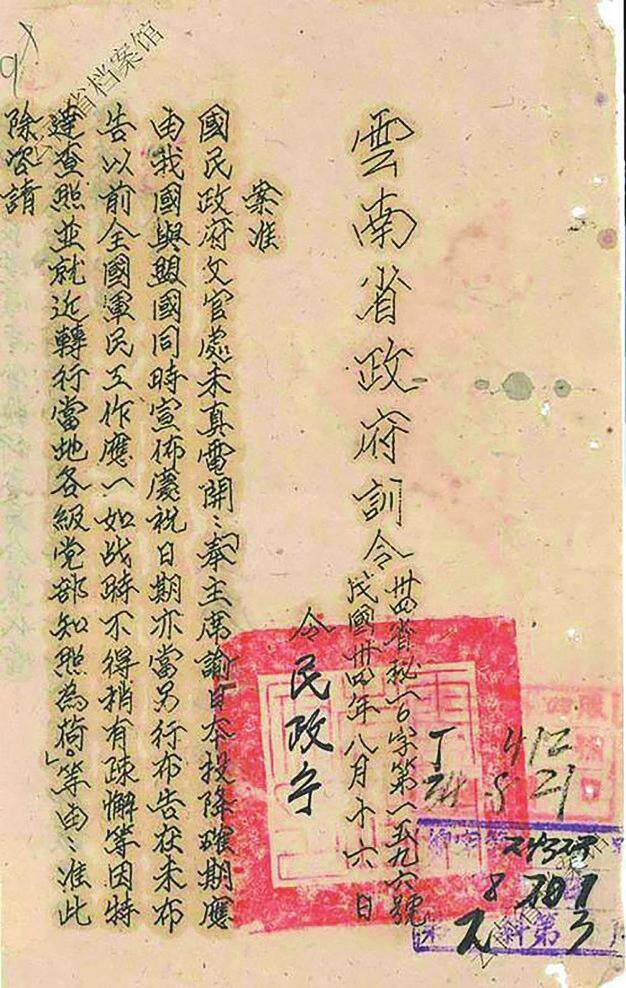 雲南省政府訓令
卅四省秘一字第一五九六號
民國卅四年八月十六日
令民政厅
案准
國民政府文官處未真電開:「奉主席諭日本投降確期應
由我國與盟國同時宣佈慶祝日期亦當另行布告在未布
告以前全國軍民工作應一如战時不得稍有疎懈等因特
達查照並就近轉行當地各級党部知照為荷」等由:准此
除咨請
省档案馆